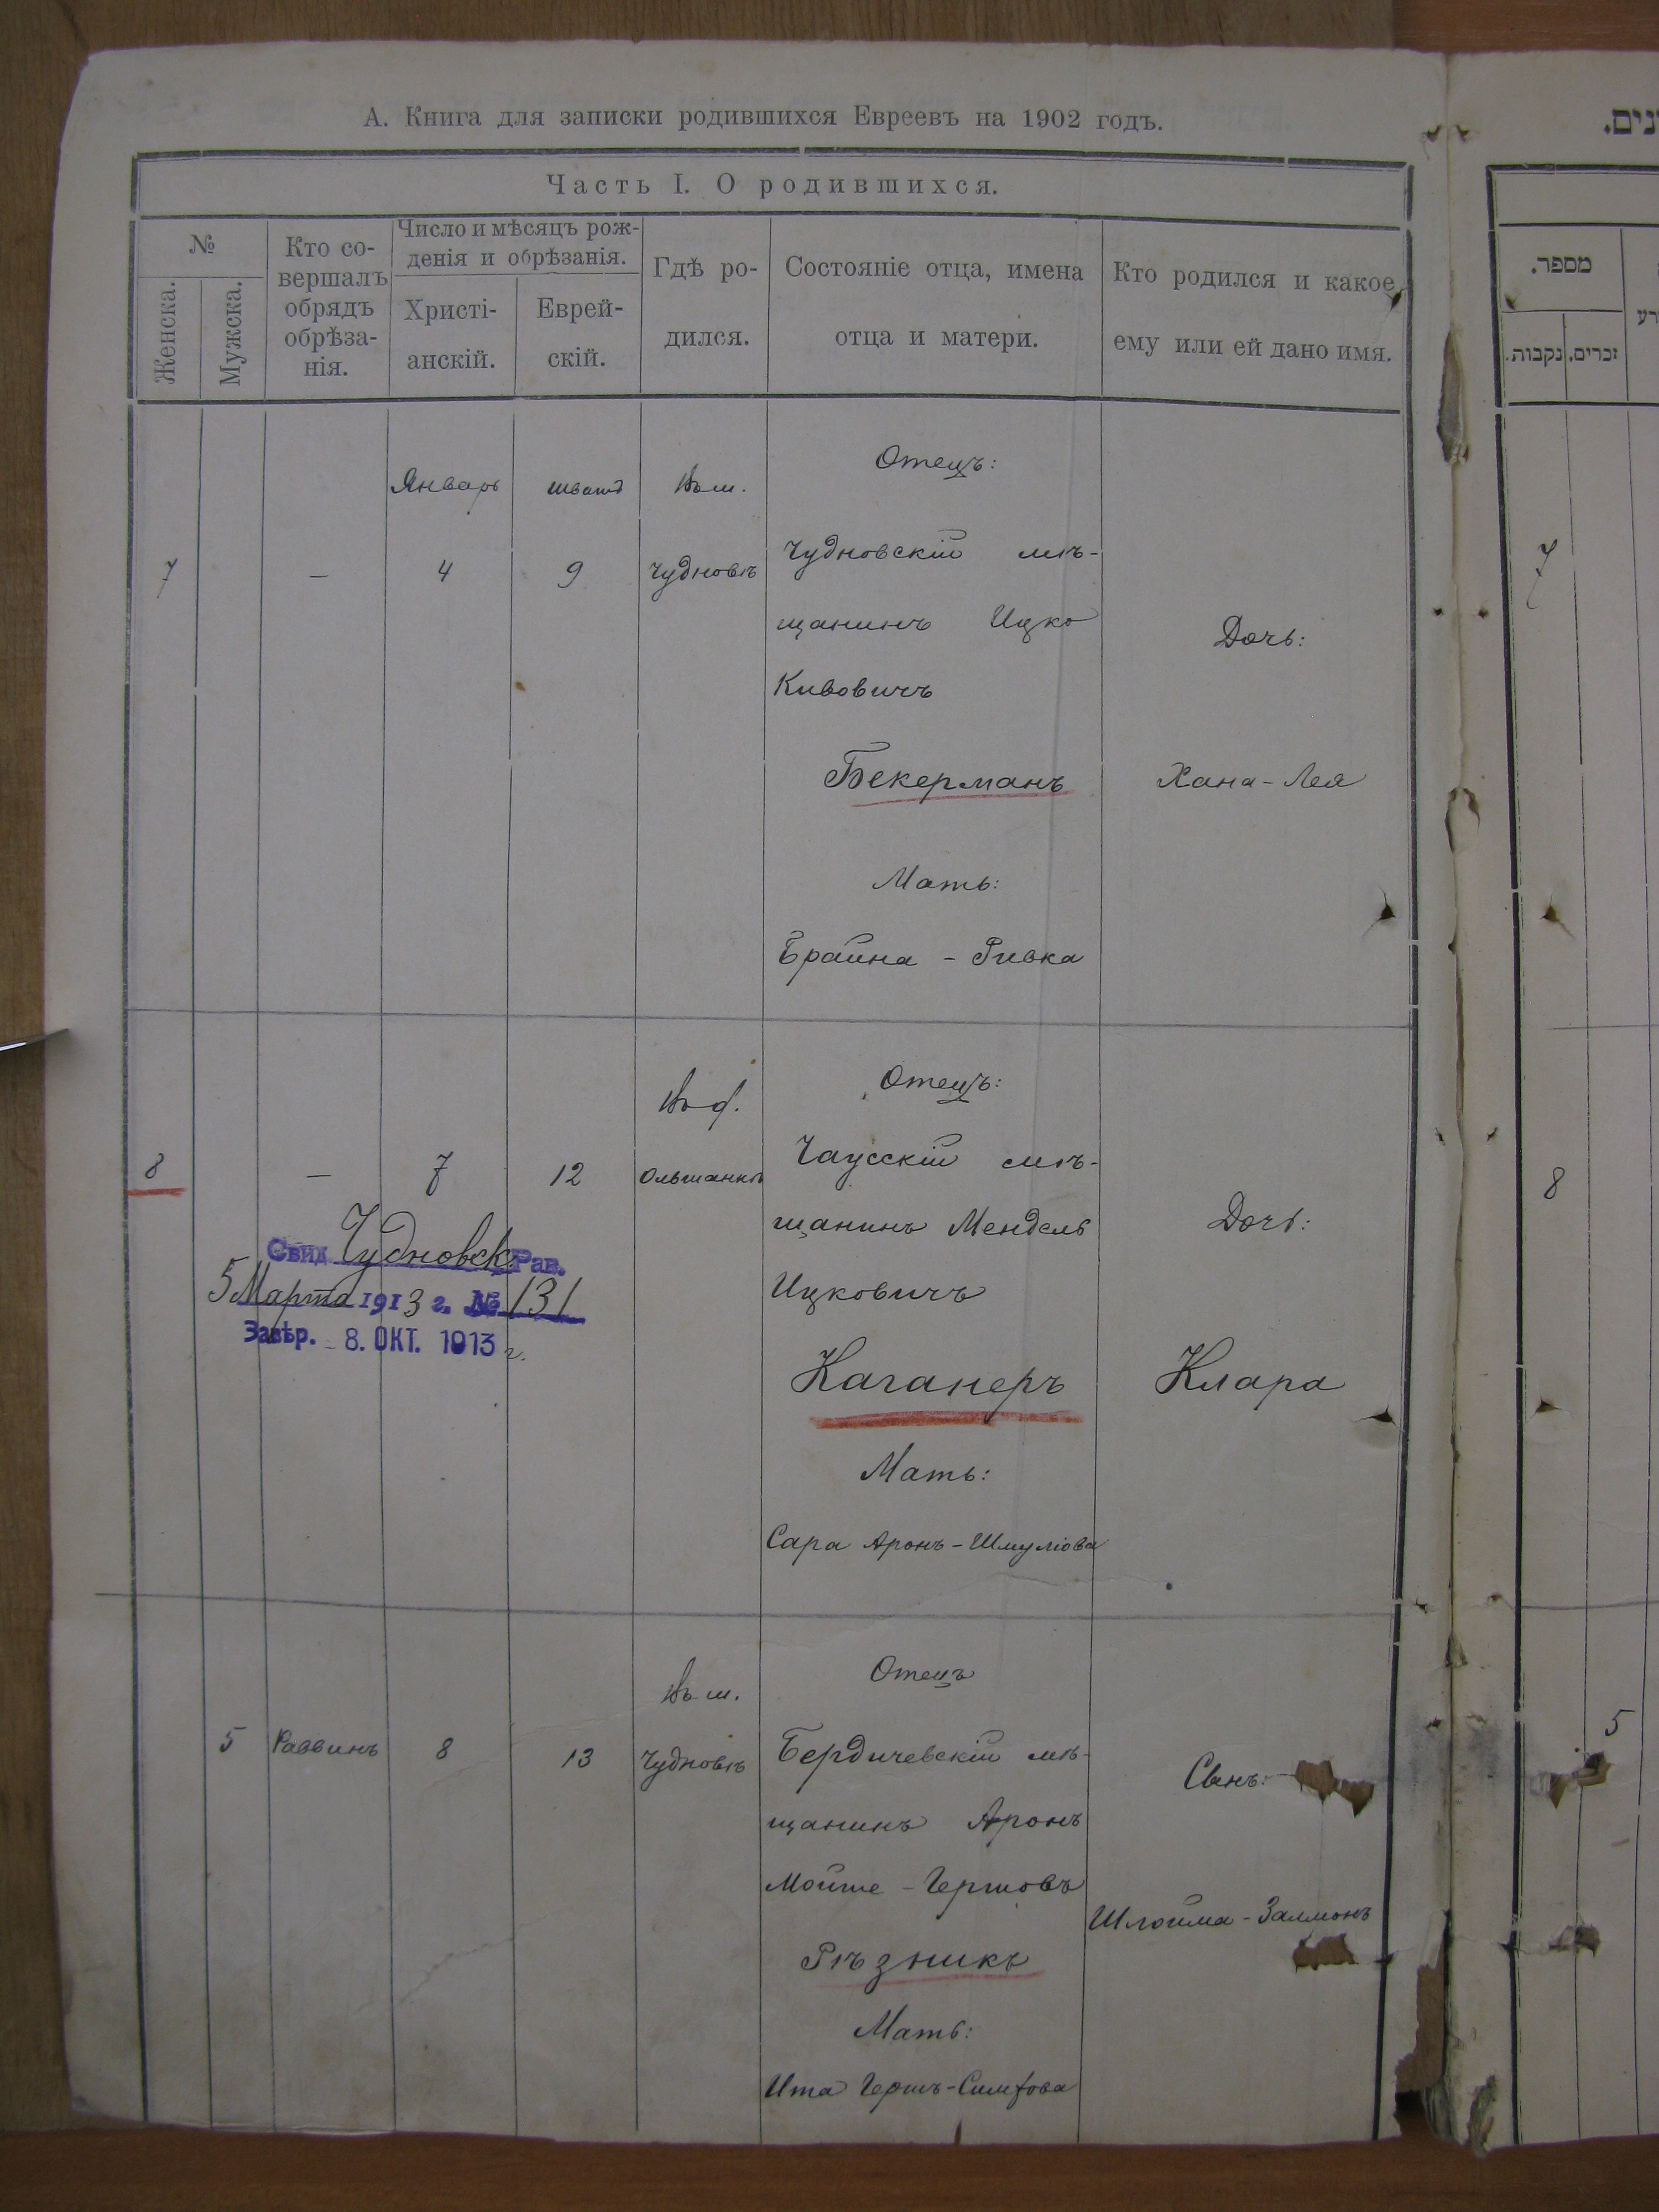 А. Книга для записки родившихся Евреевъ на 1902 годъ.
Часть I. О родившихся.
№
Женска.
Мужска.
Кто со-
вершалъ
обрядъ
обрѣза-
нія.
Число и мѣсяцъ рож-
денія и обрѣзанія.
Христі-
анскій.
Еврей-
скій.
Гдѣ ро-
дился.
Состояніе отца, имена
отца и матери.
Кто родился и какое
ему или ей дано имя.
7
—
Январь
4
шватъ
9
Въ м.
Чудновѣ
Отецъ:
Чудновскій мѣ-
щанинъ Ицко
Кивовичъ
Бекерманъ
Мать:
Брайна - Ривка
Дочь:
Хана - Лея
8
—
7
12
Въ ф.
Ольшанкѣ
Отецъ:
Чаусскій мѣ-
щанинъ Мендель
Ицковичъ
Каганеръ
Мать:
Сара Аронъ - Шмуліова
Дочь:
Клара
Свид Чудновск Рав.
5 Марта 1913 г. № 131
Завѣр. 8. ОКТ. 1913 г.
5
Раввинъ
8
13
Въ м.
Чудновѣ
Отецъ
Бердичевскій мѣ-
щанинъ Аронъ
Мойше - Гершовъ
Рѣзникъ
Мать:
Ита Гершъ - Симхова
Сынъ:
Шлойма - Залмонъ
נים.
מספר.
נקבות.
זכרים.
רע
7
8
5